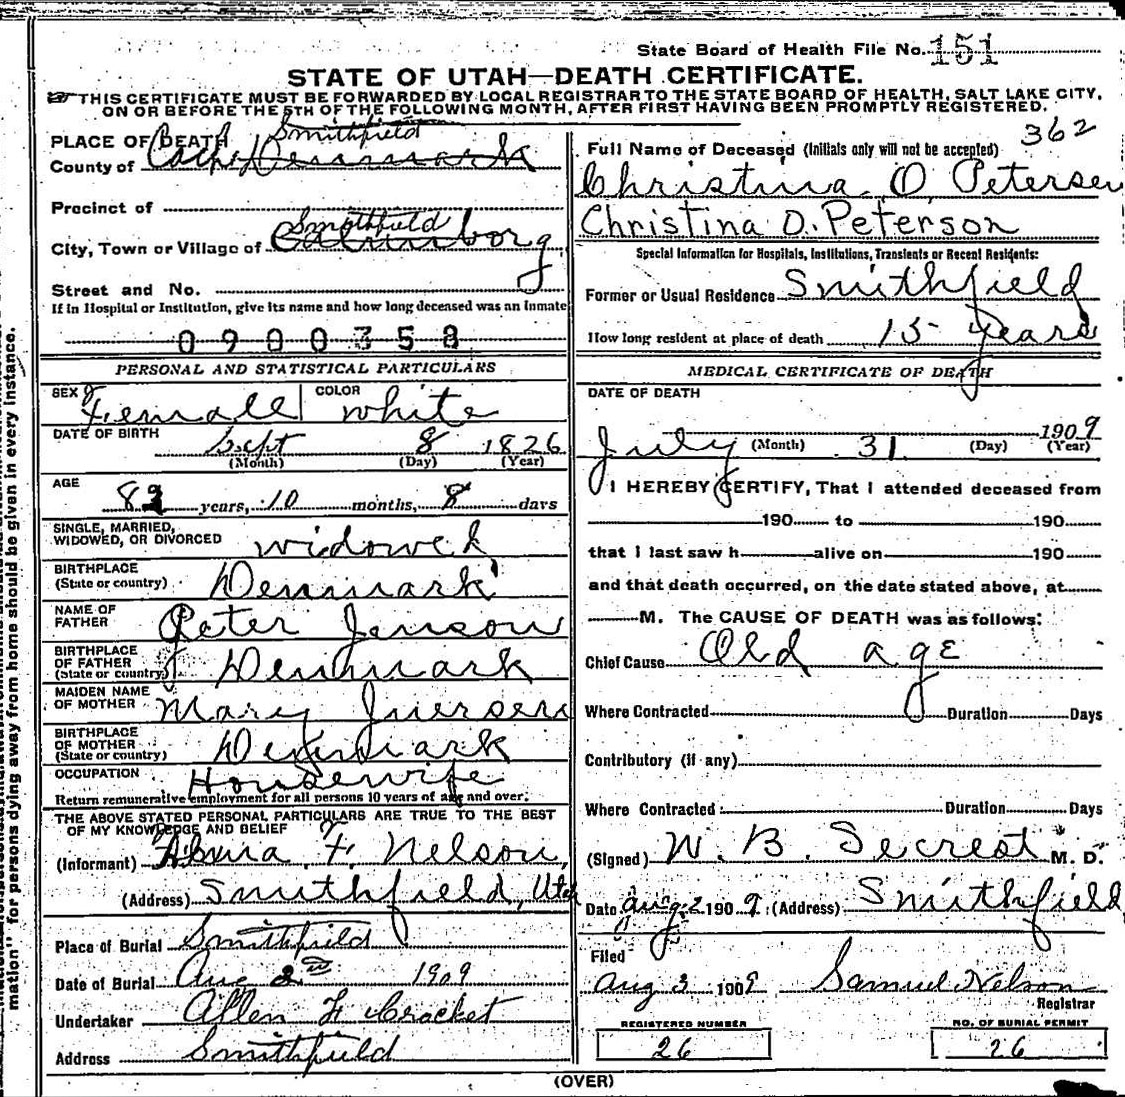 State Board of Health File No. 151
STATE OF UTAH—DEATH CERTIFICATE.
THIS CERTIFICATE MUST BE FORWARDED BY LOCAL REGISTRAR TO THE STATE BOARD OF HEALTH, SALT LAKE CITY,
ON OR BEFORE THE 5TH OF THE FOLLOWING MONTH, AFTER FIRST HAVING BEEN PROMPTLY REGISTERED.
PLACE OF DEATH Smithfield
County of Cache Denmark
Precinct of
Smithfield
City, Town or Village of
Street and No.
If in Hospital or Institution, give its name and how long deceased was an inmate
0900358
PERSONAL AND STATISTICAL PARTICULARS
SEX Female COLOR white
DATE OF BIRTH Sept 8 1826
(Month) (Day) (Year)
AGE
82 years, 10 months, 8 days
SINGLE, MARRIED,
WIDOWED, OR DIVORCED widowed
BIRTHPLACE
(State or country) Denmark
NAME OF
FATHER Peter Jenson
BIRTHPLACE
OF FATHER
(State or country) Denmark
MAIDEN NAME
OF MOTHER Mary
BIRTHPLACE
OF MOTHER
(State or country) Denmark
OCCUPATION Housewife
Return remunerative employment for all persons 10 years of age and over.
THE ABOVE STATED PERSONAL PARTICULARS ARE TRUE TO THE BEST
OF MY KNOWLEDGE AND BELIEF
(Informant) F. Nelson,
(Address) Smithfield, Utah
Place of Burial Smithfield
Date of Burial Aug 2nd 1909
Undertaker Allen F Crocket
Address Smithfield
362
Full Name of Deceased (Initials only will not be accepted)
Christina O Petersen
Christina O. Peterson
Special Information for Hospitals, Institutions, Transients or Recent Residents:
Former or Usual Residence Smithfield
How long resident at place of death 15 years
MEDICAL CERTIFICATE OF DEATH
DATE OF DEATH
July 31 1909
(Month) (Day) (Year)
I HEREBY CERTIFY, That I attended deceased from
190 to 190
that I last saw h alive on 190
and that death occurred, on the date stated above, at
M. The CAUSE OF DEATH was as follows:
Chief Cause Old age
Where Contracted Duration Days
Contributory (if any)
Where Contracted: Duration Days
(Signed) W. B. Secrest M. D.
Date Aug. 2 1909 (Address) Smithfield
Filed
Aug 3 1909 Samuel Nelson
Registrar
REGISTERED NUMBER
26
NO. OF BURIAL PERMIT
26
(OVER)
mation" for persons dying away from home should be given in every instance.